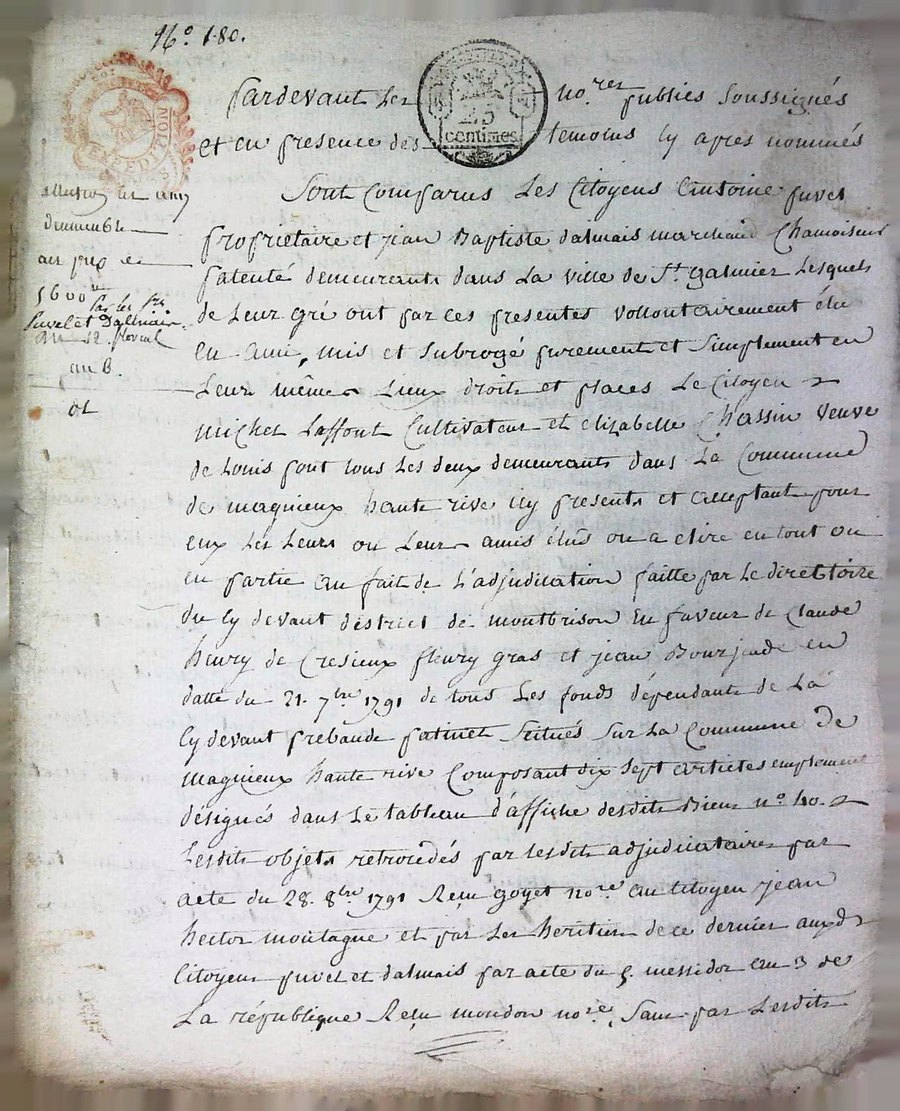 N.º 180.
pardevant Les no.res publics soussignés
25
centimes
et en presence des temoins Cy apres nommés
Sont Comparus Les Citoyens Antoine puvel
proprietaire et jean Baptiste dalmais marchand Chamoiseur
patenté demeurants dans La ville de S.t galmier Lesquels
de Leur gré ont par ces presentes vollontairement élu
en ami, mis et subrogé purement et simplement en
Leur mêmes Lieux droits et places Le Citoyen
michel Laffont Cultivateur et elizabelle Chassin veuve
de Louis font tous Les deux demeurants dans La Commune
de magnieux haute rive icy presents et acceptant pour
eux Les Leurs ou Leurs amis élûs ou a elire en tout ou
en partie au fait de L'adjudication faitte par Le directoire
du Cy devant district de montbrison en faveur de Claude
henry de Cresieux fleury gras et jean Bourjade en
datte du 21. 7bre 1791 de tous Les fonds dépendants de La
Cy devant prebande patinet scitués sur La Commune de
magnieux haute rive Composant dix sept articles emplement
désignés dans Le tableau d'affiche desdits Biens n.º 40.
Lesdits objets retrocédés par lesdits adjudicataires par
acte du 28. 8bre 1791 Reçu goyet no.re au Citoyen jean
hector montagne et par Les heritiers de ce dernier auxd.
Citoyens puvel et dalmais par acte du 5 messidor an 3 de
La république Reçu mondon no.re, Sauf par Lesdits
d'immeuble
au prix de
5600
par les
puvel et Dalmais
du 12. floréal
an 8.